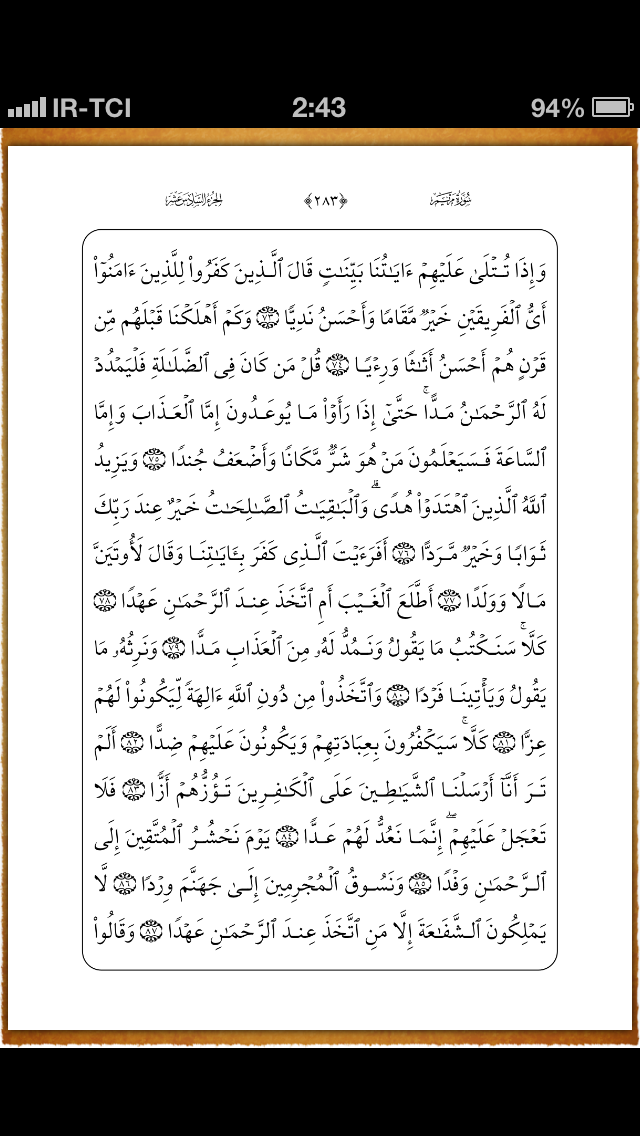 IR-TCI 2:43 94%
سُورَةُ مَرْيَمَ ﴿٢٨٣﴾ الجُزْءُ السَّادِسَ عَشَرَ
وَإِذَا تُتْلَىٰ عَلَيْهِمْ ءَايَـٰتُنَا بَيِّنَـٰتٍ قَالَ ٱلَّذِينَ كَفَرُوا۟ لِلَّذِينَ ءَامَنُوٓا۟
أَىُّ ٱلْفَرِيقَيْنِ خَيْرٌ مَّقَامًا وَأَحْسَنُ نَدِيًّا ٧٣ وَكَمْ أَهْلَكْنَا قَبْلَهُم مِّن
قَرْنٍ هُمْ أَحْسَنُ أَثَـٰثًا وَرِءْيًا ٧٤ قُلْ مَن كَانَ فِى ٱلضَّلَـٰلَةِ فَلْيَمْدُدْ
لَهُ ٱلرَّحْمَـٰنُ مَدًّا ۚ حَتَّىٰٓ إِذَا رَأَوْا۟ مَا يُوعَدُونَ إِمَّا ٱلْعَذَابَ وَإِمَّا
ٱلسَّاعَةَ فَسَيَعْلَمُونَ مَنْ هُوَ شَرٌّ مَّكَانًا وَأَضْعَفُ جُندًا ٧٥ وَيَزِيدُ
ٱللَّهُ ٱلَّذِينَ ٱهْتَدَوْا۟ هُدًى ۗ وَٱلْبَـٰقِيَـٰتُ ٱلصَّـٰلِحَـٰتُ خَيْرٌ عِندَ رَبِّكَ
ثَوَابًا وَخَيْرٌ مَّرَدًّا ٧٦ أَفَرَءَيْتَ ٱلَّذِى كَفَرَ بِـَٔايَـٰتِنَا وَقَالَ لَأُوتَيَنَّ
مَالًا وَوَلَدًا ٧٧ أَطَّلَعَ ٱلْغَيْبَ أَمِ ٱتَّخَذَ عِندَ ٱلرَّحْمَـٰنِ عَهْدًا ٧٨
كَلَّا ۚ سَنَكْتُبُ مَا يَقُولُ وَنَمُدُّ لَهُۥ مِنَ ٱلْعَذَابِ مَدًّا ٧٩ وَنَرِثُهُۥ مَا
يَقُولُ وَيَأْتِينَا فَرْدًا ٨٠ وَٱتَّخَذُوا۟ مِن دُونِ ٱللَّهِ ءَالِهَةً لِّيَكُونُوا۟ لَهُمْ
عِزًّا ٨١ كَلَّا ۚ سَيَكْفُرُونَ بِعِبَادَتِهِمْ وَيَكُونُونَ عَلَيْهِمْ ضِدًّا ٨٢ أَلَمْ
تَرَ أَنَّآ أَرْسَلْنَا ٱلشَّيَـٰطِينَ عَلَى ٱلْكَـٰفِرِينَ تَؤُزُّهُمْ أَزًّا ٨٣ فَلَا
تَعْجَلْ عَلَيْهِمْ ۖ إِنَّمَا نَعُدُّ لَهُمْ عَدًّا ٨٤ يَوْمَ نَحْشُرُ ٱلْمُتَّقِينَ إِلَى
ٱلرَّحْمَـٰنِ وَفْدًا ٨٥ وَنَسُوقُ ٱلْمُجْرِمِينَ إِلَىٰ جَهَنَّمَ وِرْدًا ٨٦ لَّا
يَمْلِكُونَ ٱلشَّفَـٰعَةَ إِلَّا مَنِ ٱتَّخَذَ عِندَ ٱلرَّحْمَـٰنِ عَهْدًا ٨٧ وَقَالُوا۟